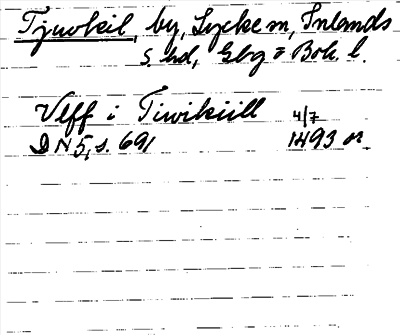 Tjuvkil, by, Lycke sn, Inlands
S hd, Gbg o Boh. l.
Ulff i Tiwikiill 4/7
DN 5, s. 691 1493 or.